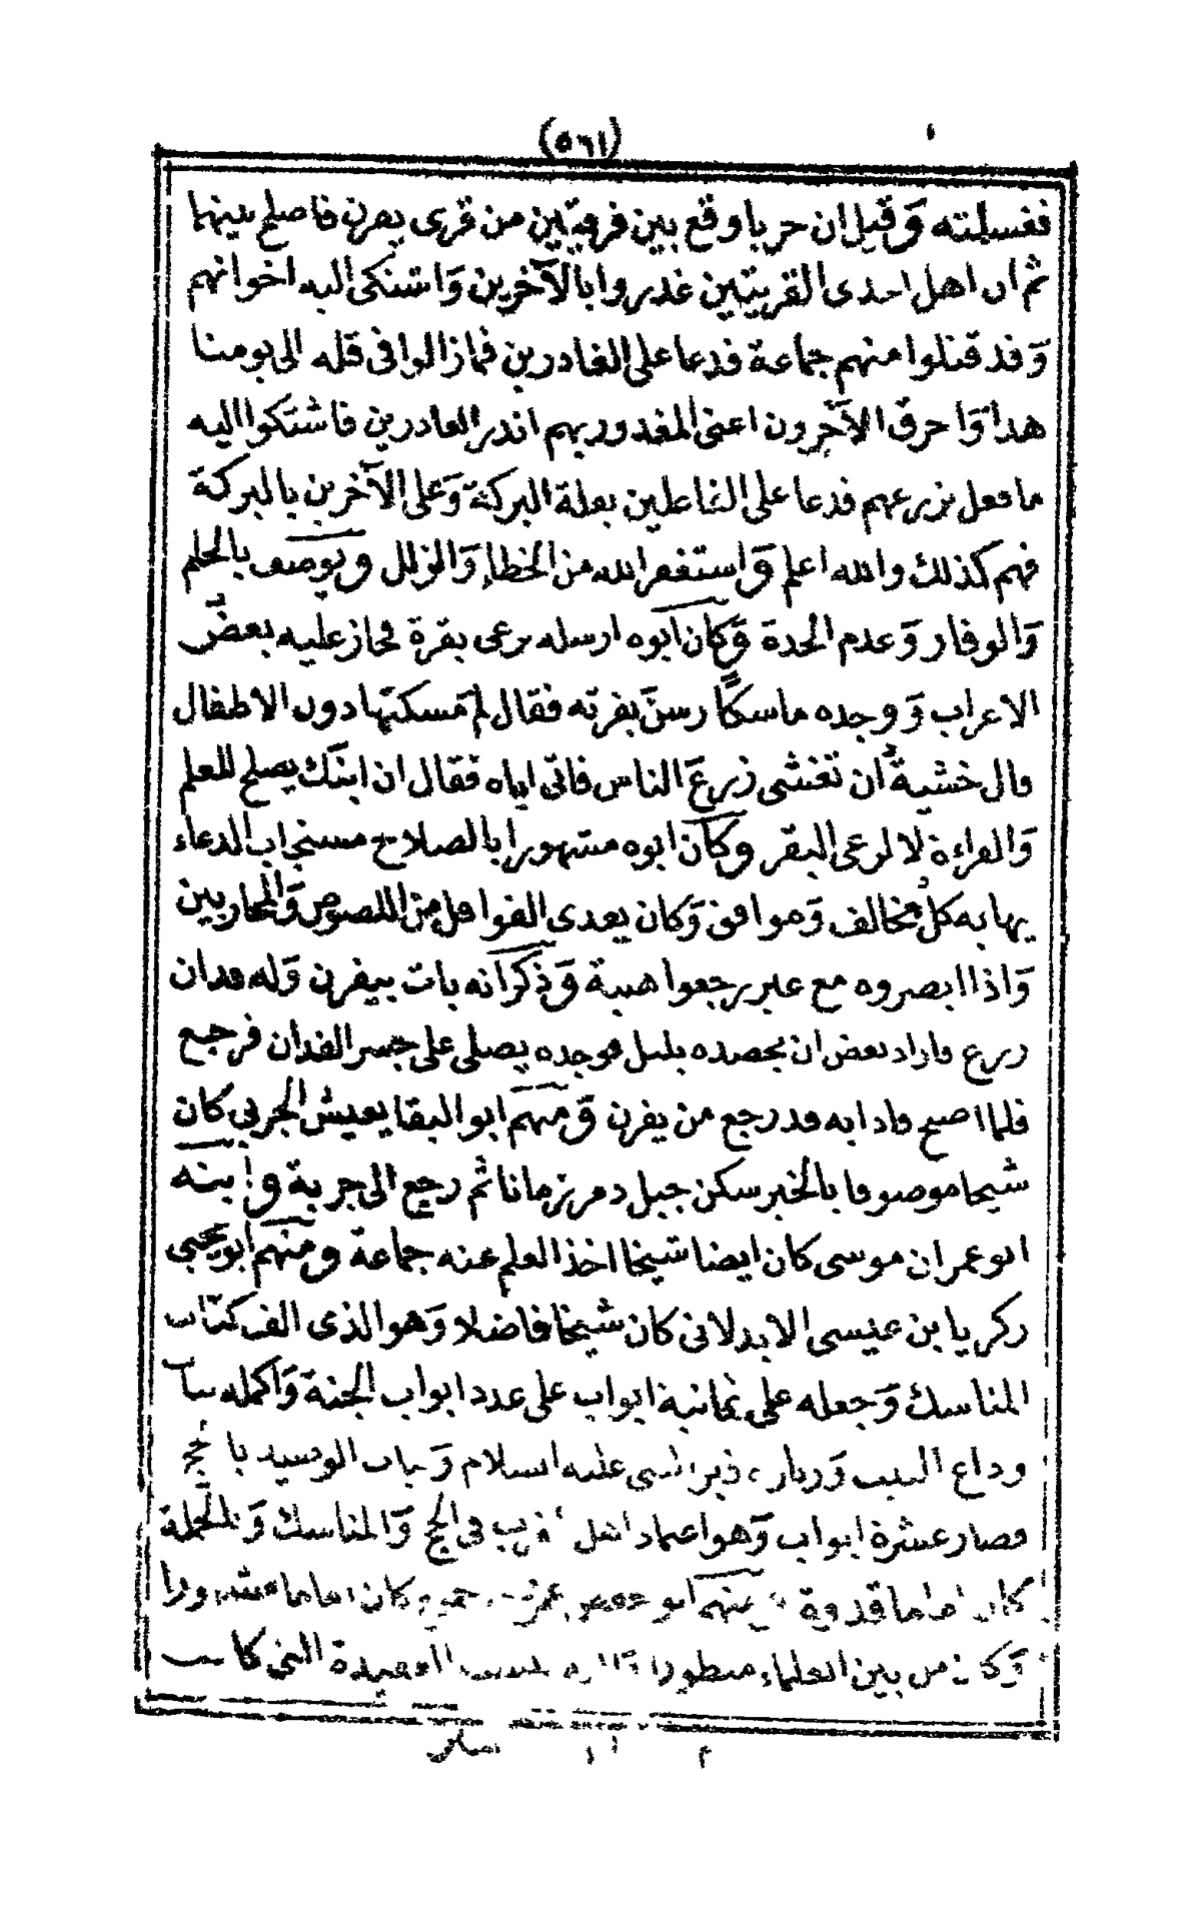 (٥٦١)
فغسلته وقيل ان حربا وقع بين فرقتين من قرى يفرن فاصلح بينهما
ثم ان اهل احدى القريتين غدروا بالآخرين واشتكى اليه اخوانهم
وقد قتلوا منهم جماعة فدعا على الغادرين فمازالوا فى قلة الى يومنا
هذا واحرق الآخرون اعنى المغدور بهم اندر الغادرين فاشتكوا اليه
ما فعل بزرعهم فدعا على الفاعلين بقلة البركة وعلى الآخرين بالبركة
فهم كذلك والله اعلم واستغفر الله من الخطإ والزلل ويوصف بالحلم
والوقار وعدم الحدة وكان ابوه ارسله يرعى بقرة فجاز عليه بعض
الاعراب ووجده ماسكا رسن بقرته فقال لم تمسكتها دون الاطفال
قال خشية ان تغشى زرع الناس فاتى اباه فقال ان ابنك يصلح للعلم
والقراءة لا لرعى البقر وكان ابوه مشهورا بالصلاح مستجاب الدعاء
يهابه كل مخالف وموافق وكان يعدى القوافل من اللصوص والمحاربين
واذا ابصروه مع عير رجعوا هيبة وذكر انه بات بيفرن وله فدان
زرع فاراد بعض ان يحصده بليل فوجده يصلى على جسر الفدان فرجع
فلما اصبح فاذا به قد رجع من يفرن ومنهم ابو البقا يعيش الجربى كان
شيخا موصوفا بالخير سكن جبل دمر زمانا ثم رجع الى جربة وابنه
ابو عمران موسى كان ايضا شيخا اخذ العلم عنه جماعة ومنهم ابو يحيى
زكريا بن عيسى الابدلانى كان شيخا فاضلا وهو الذى الف كتاب
المناسك وجعله على ثمانية ابواب على عدد ابواب الجنة واكمله بباب
وداع البيت وزيارة قبر النبى عليه السلام وباب الوصيد بالحج
فصار عشرة ابواب وهو اعتماد اهل المغرب فى الحج والمناسك وبالجملة
كان اماما قدوة ومنهم ابو حفص عمر بن جميع كان اماما مشهورا
وكان من بين العلماء منظورا العقيدة التى كانت